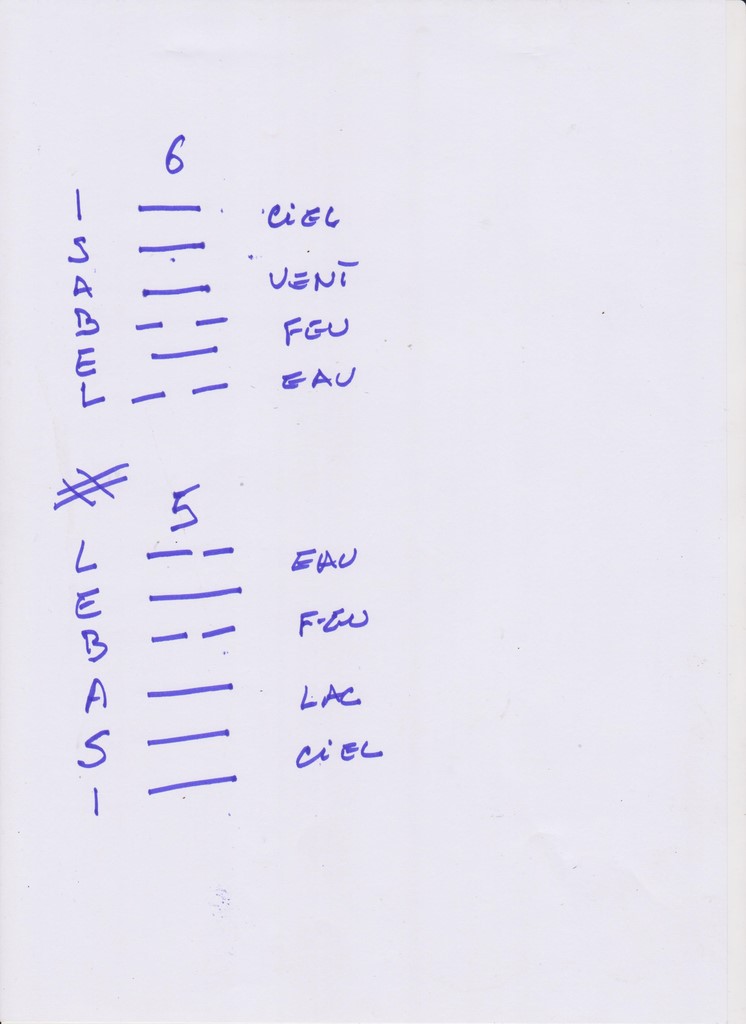 6
I CiEL
S
A VENT
B FEU
E
L EAU
5
L EAU
E
B FEU
A LAC
S CiEL
I